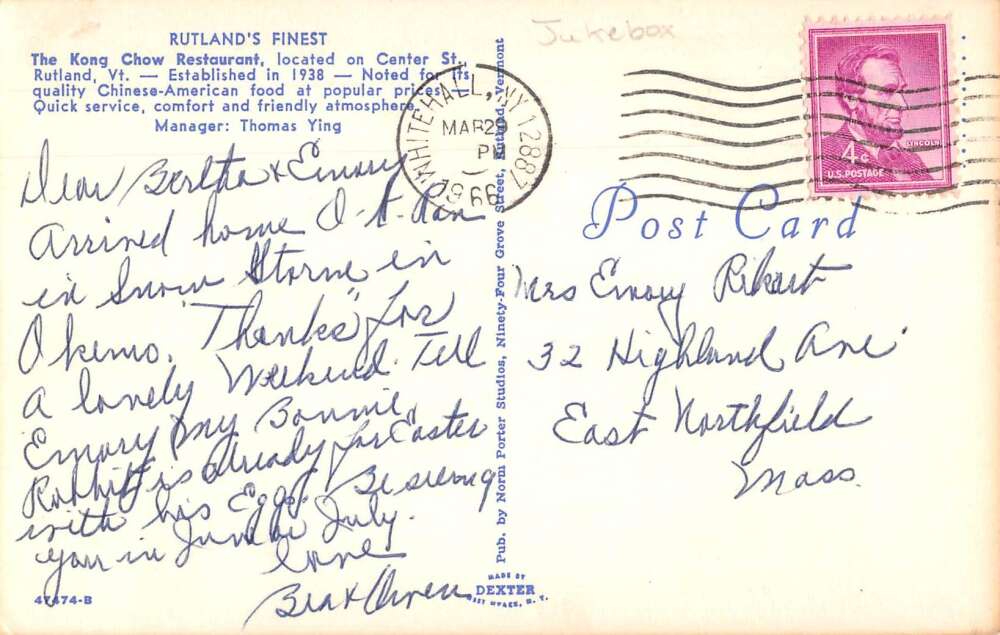 RUTLAND'S FINEST
The Kong Chow Restaurant, located on Center St.
Rutland, Vt. — Established in 1938 — Noted for its
quality Chinese-American food at popular prices.
Quick service, comfort and friendly atmosphere.
Manager: Thomas Ying
Dear Bertha & Emory
Arrived home O.K. Ran
in Snow Storm in
Okemo. "Thanks" for
a lovely Weekend. Tell
Emory my Bonnie
Rabbit is already for Easter
with his Eggs. Be seeing
you in June or July.
Love
Bea & Owen
47474-B
Pub. by Norm Porter Studios, Ninety-Four Grove Street, Rutland, Vermont
MADE BY
DEXTER
WEST NYACK, N. Y.
Jukebox
WHITEHALL, NY 12887
MAR 29
PM
1966
LINCOLN
4¢
U.S. POSTAGE
Post Card
Mrs Emory
32 Highland Ave
East Northfield
Mass.